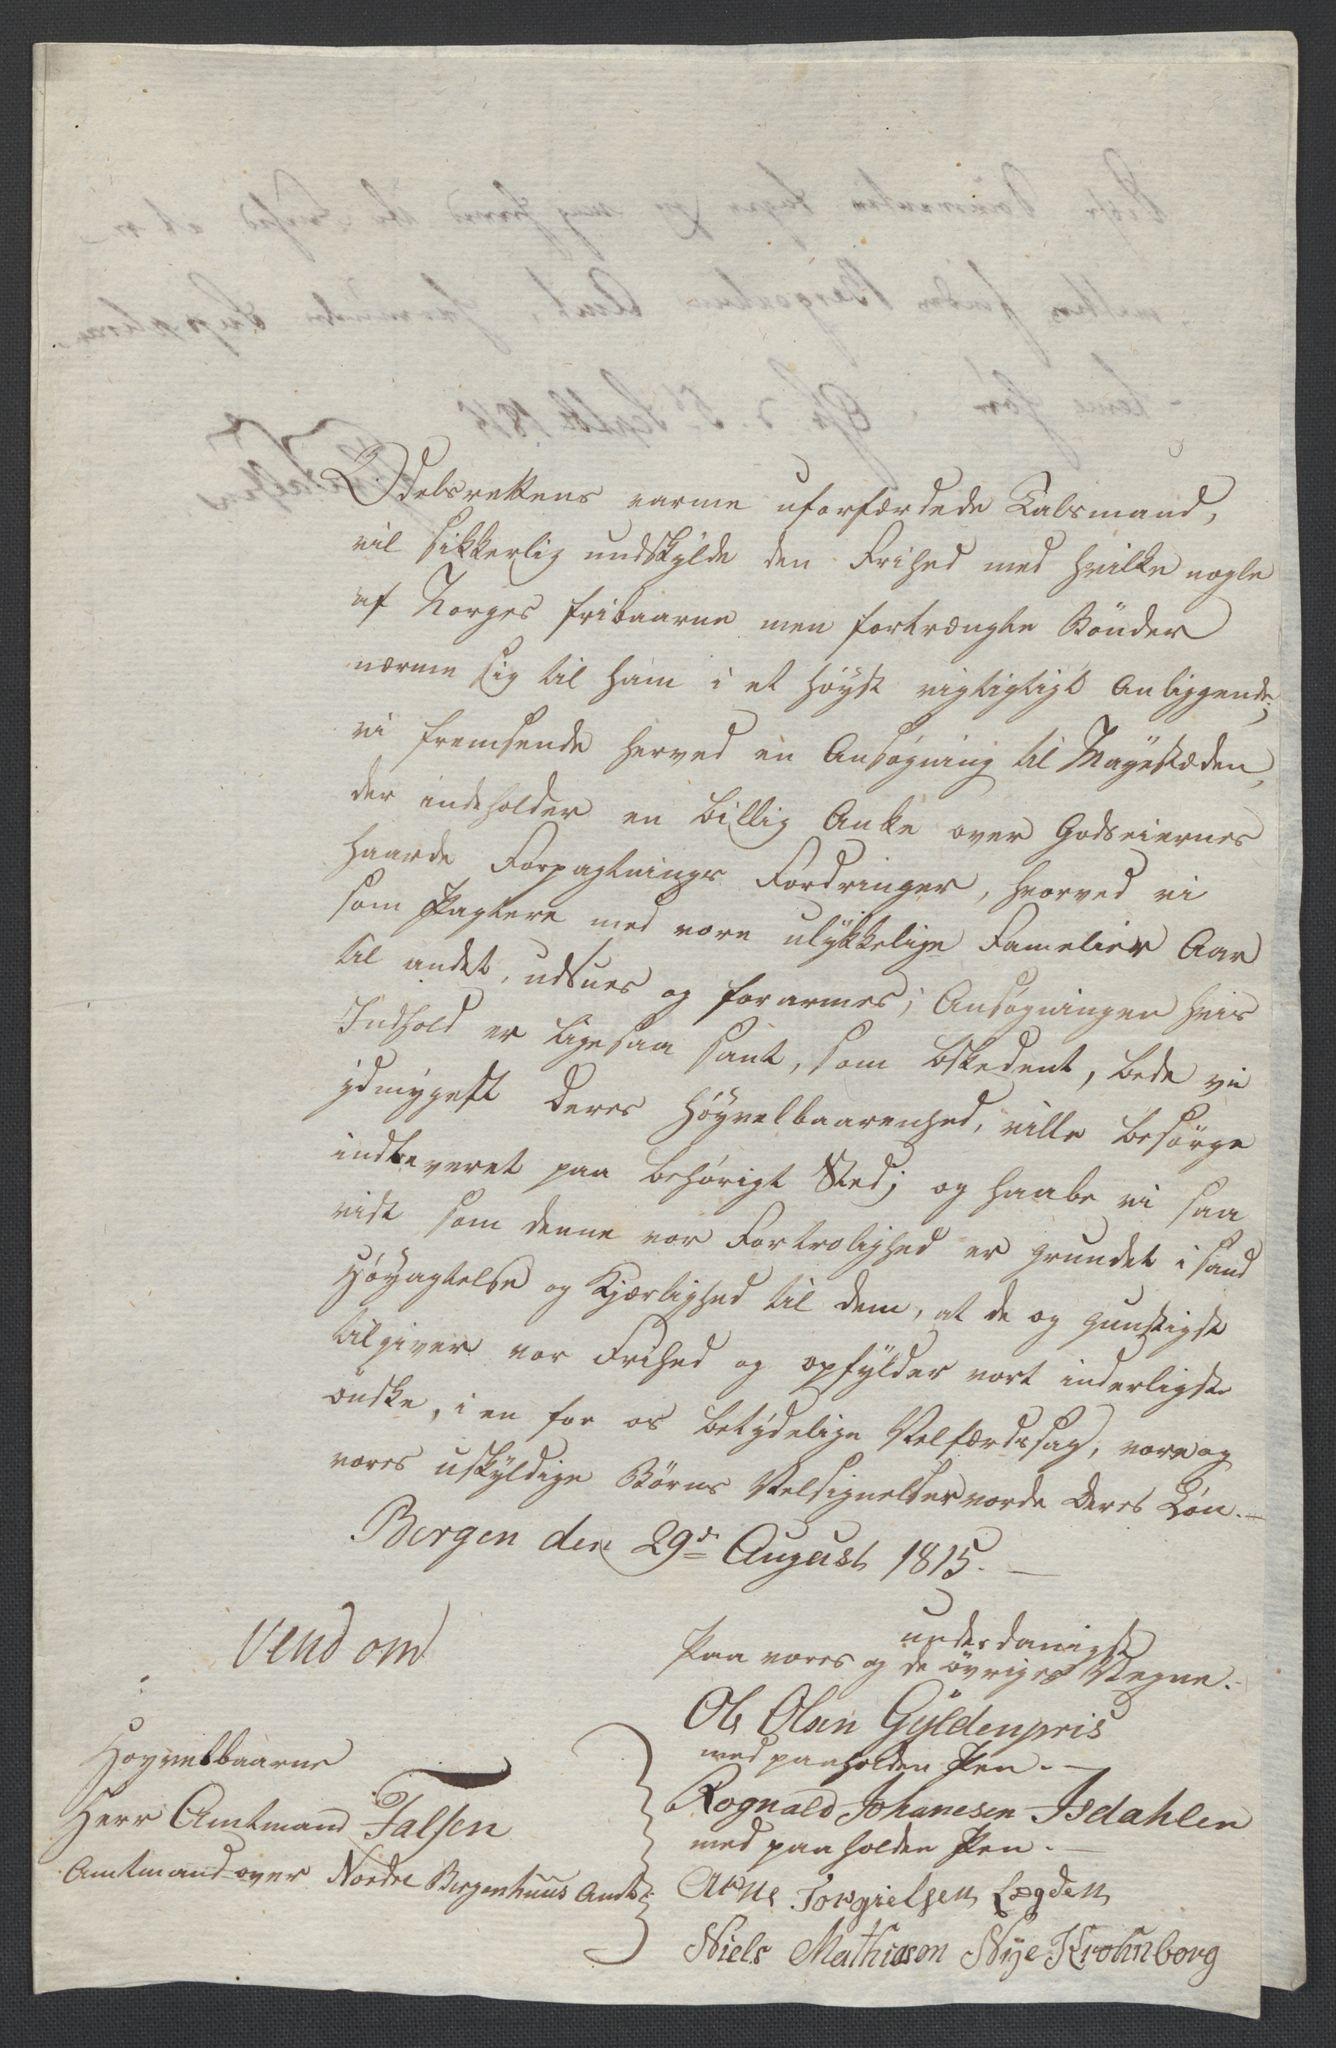 Odelsrettens varme uforfærdede Talsmand,
vil sikkerlig undskÿlde den Frihed med hvilke nogle
af Norges fribaarne men fortrængte Bönder
nærme sig til ham i et höyst vigtigtigt Anliggende;
vi fremsende herved en Ansøgning til Mayestæden,
der indeholder en billig Anke over Godseiernes
haarde Forpagtnings Fordringer, hvorved vi
som Pagtere med vore ulÿkkelige Familier Aar
til andet, udsues og forarmes; Ansøgningen hvis
Indhold er ligesaa sant, som bskedent, bede vi
ÿdmygest Deres Höyvelbaarenhed, ville besörge
indleveret paa behörigt Sted; og haabe vi saa
vist som denne vor Fortrolighed er grundet i sand
Höyagtelse og Kjærlighed til dem, at de og gunstigst
tilgiver vor Frihed og opfÿlder vort inderligste
önske, i en for os betÿdelige Velfærdssag, vore og
vores uskÿldige Börns Velsignelser vorde Deres Lön.
Bergen den 29de August 1815.
Vend om
underdanigst
Paa vores og de övriges Vegne.
Ole Olsen Gÿldenpris
med paaholden Pen.
Rognald Johanesen Isdahlen
med paaholden Pen.
Arne Torgielsen Lægden
Niels Mathiesen Nÿe Krohnborg
Hoyvelbaarne
Herr Amtmand Falsen
Amtmand over Nordre Bergenhuus Amt